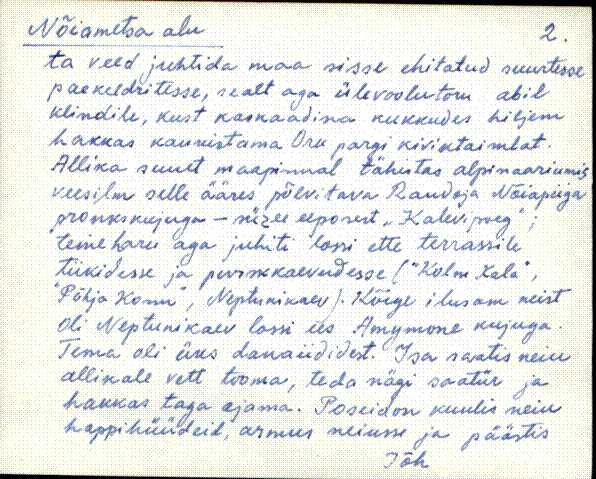 Nõiametsa alu 2.
ta veed juhtida maa sisse ehitatud suurtesse
paekeldritesse, sealt aga ülevoolutoru abil
klindile, kust kaskaadina kukkudes hiljem
hakkas kaunistama Oru pargi kiviktaimlat.
Allika suuet maapinnal tähistas alpinaariumis
veesilm selle ääres põlvitava Raudoja Nõiapiiga
pronkskujuga – eeposest „Kalevipoeg";
teine haru aga juhiti lossi ette terrassile
tiikidesse ja purskkaevudesse ("Kolm Kala",
"Põhja Konn", Neptunikaev). Kõige ilusam neist
oli Neptunikaev lossi ees Amymone kujuga.
Tema oli üks danaiididest. Isa saatis neiu
allikale vett tooma, teda nägi saatür ja
hakkas taga ajama. Poseidon kuulis neiu
appihüüdeid, armus neiusse ja päästis
Jõh